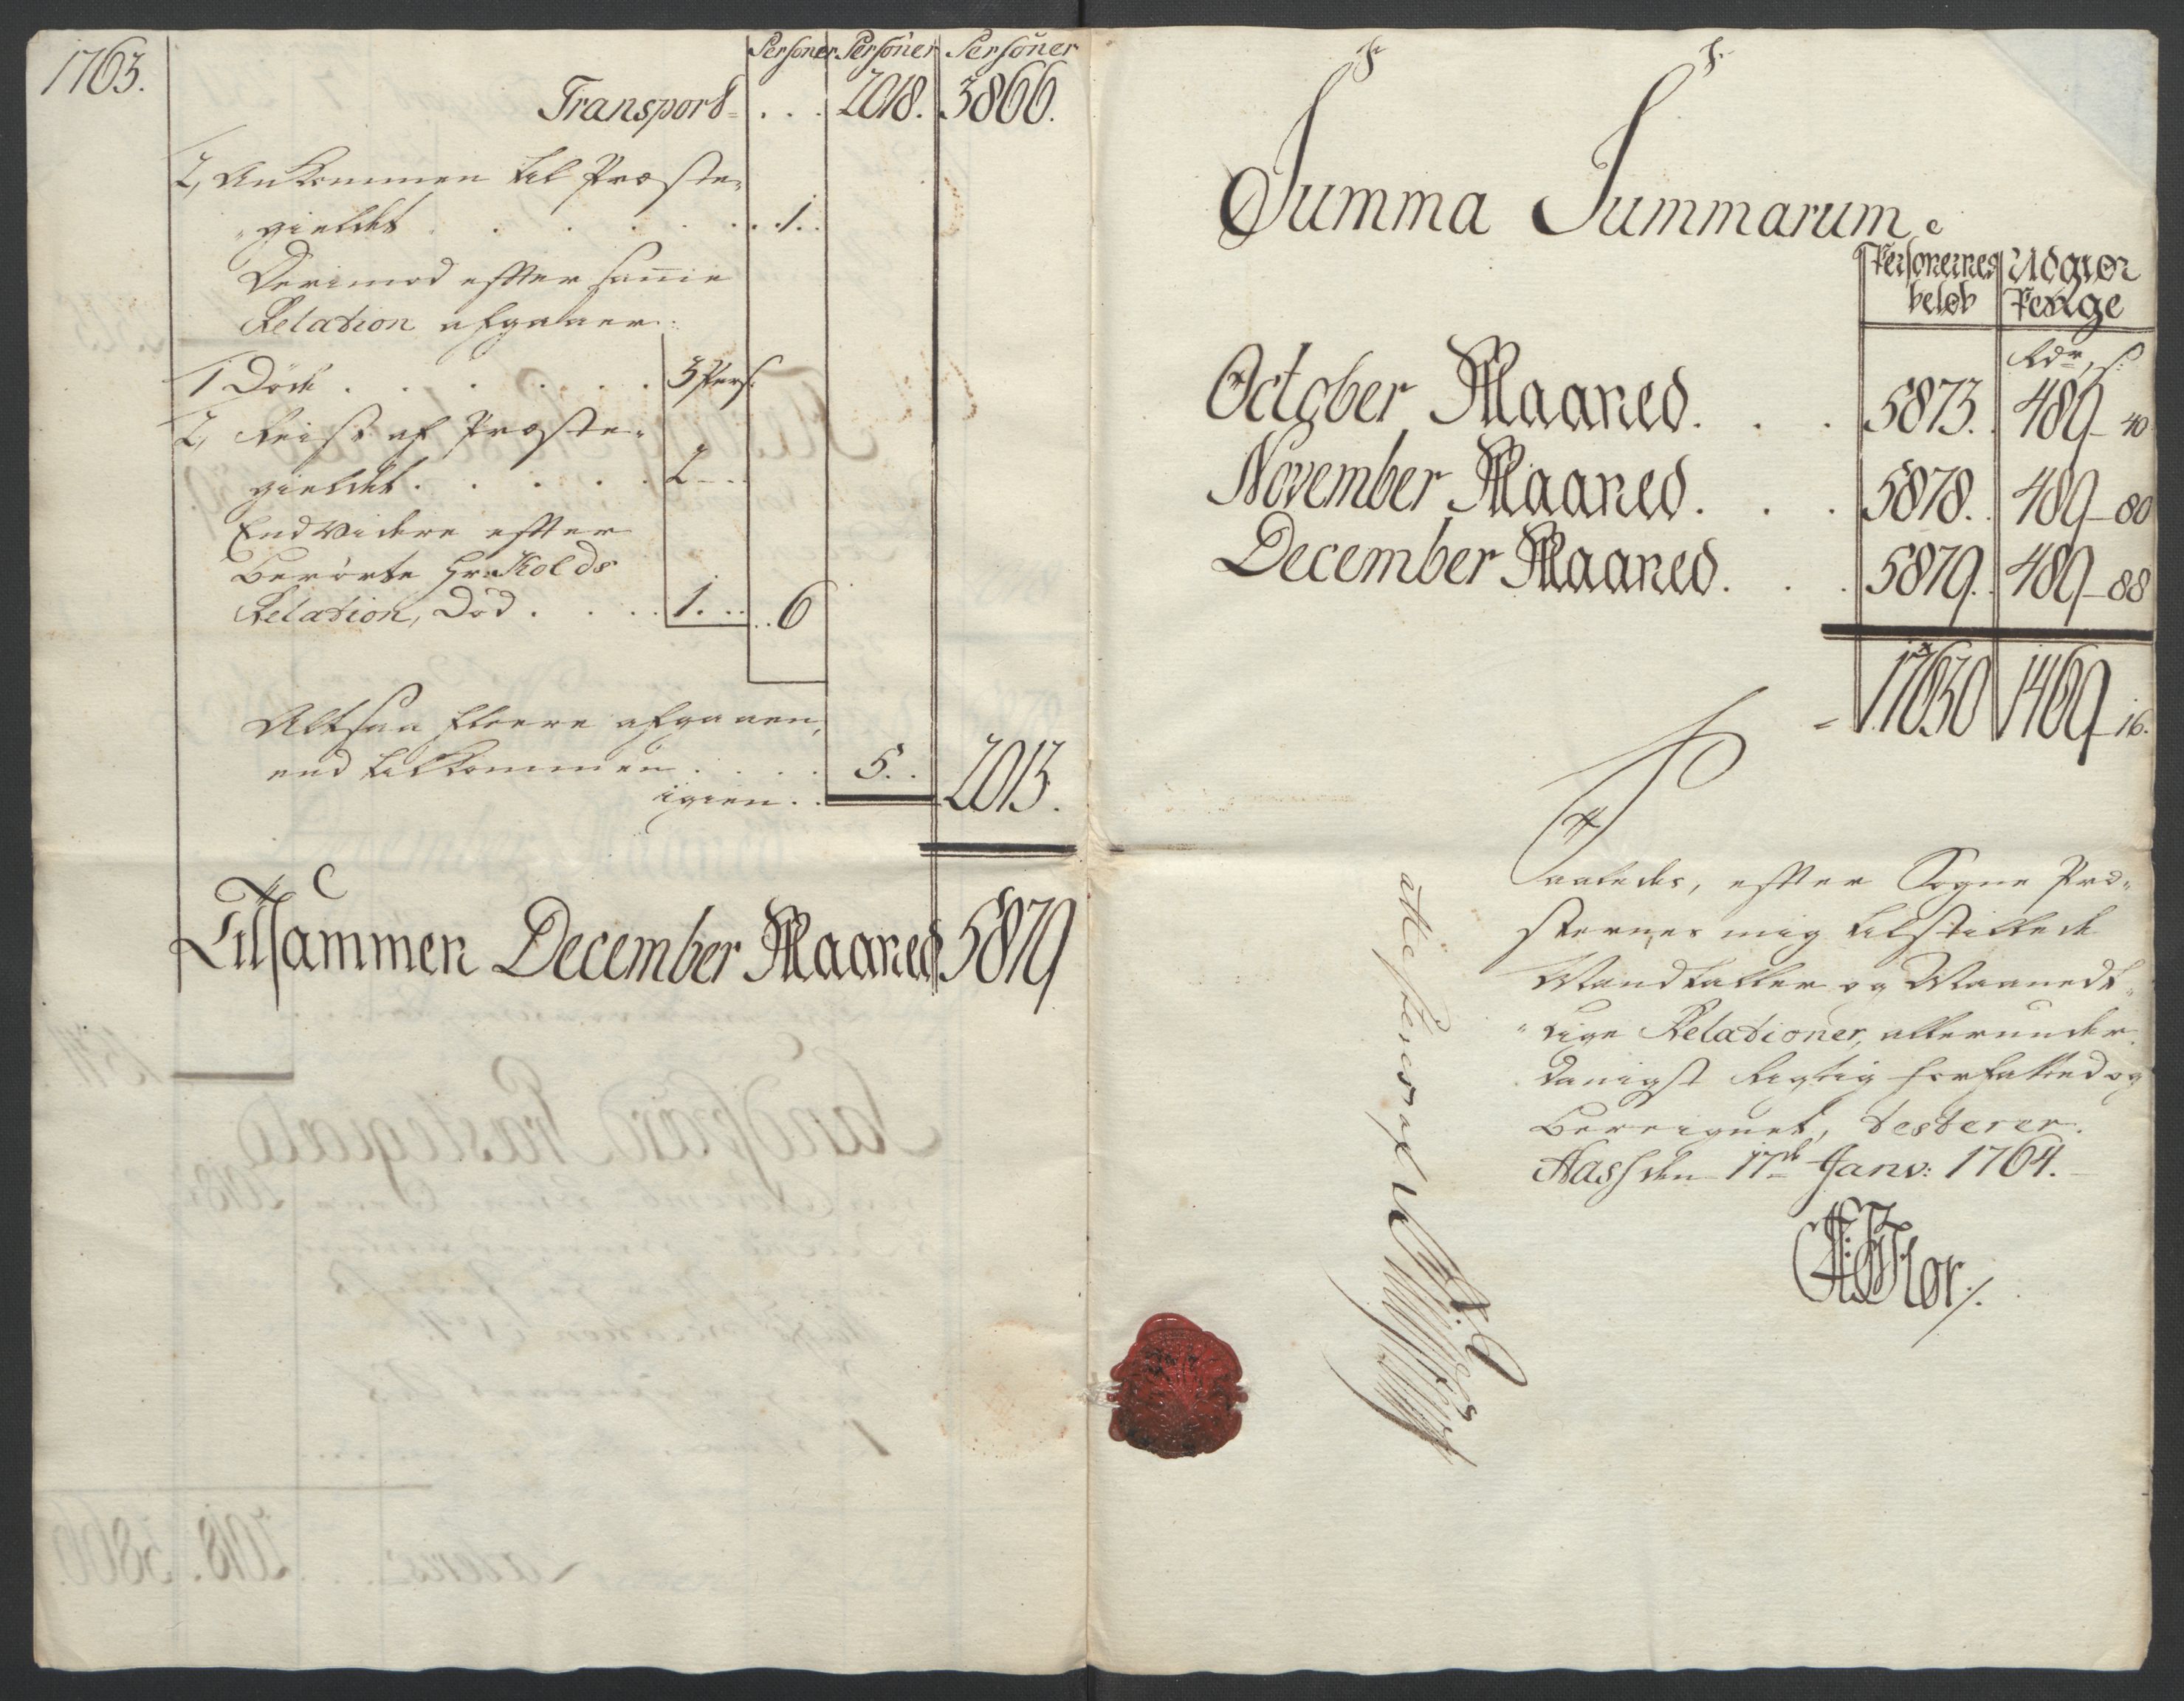 1763.
Personer Personer Personer
Transport . . . 2018. 3866.
2, Ankommen til Præste-
gieldet . . . . . . . 1.
Derimod efter samme
Relation afgaaer:
1 Døde . . . . . . 3 Pers:
2, Reist af Præste-
gieldet . . . . . 2 - -
End videre efter
berørte Hr. Kolds
Relation, Død . . . . 1. . . 6
Altsaa fleere afgaaen,
end tilkommen . . . . 5. .
igien . . 2013.
Tilsammen December Maaned 5879
Summa Summarum.
Personernes beløb
Udgiør Penge
Rdr, s:
October Maaned . . . 5873. 489 - 40
November Maaned . . . 5878. 489 - 80
December Maaned . . . 5879. 489 - 88
17630 1469 - 16.
Saaledes, efter Sogne Præ-
sternes mig tilstillede
Mandtaller og Maanedt-
lige Relationer, allerunder-
danigst rigtig forfatted og
beregnet, testerer.
Aass den 17de Janv: 1764.
Flor ./.
attesteres af